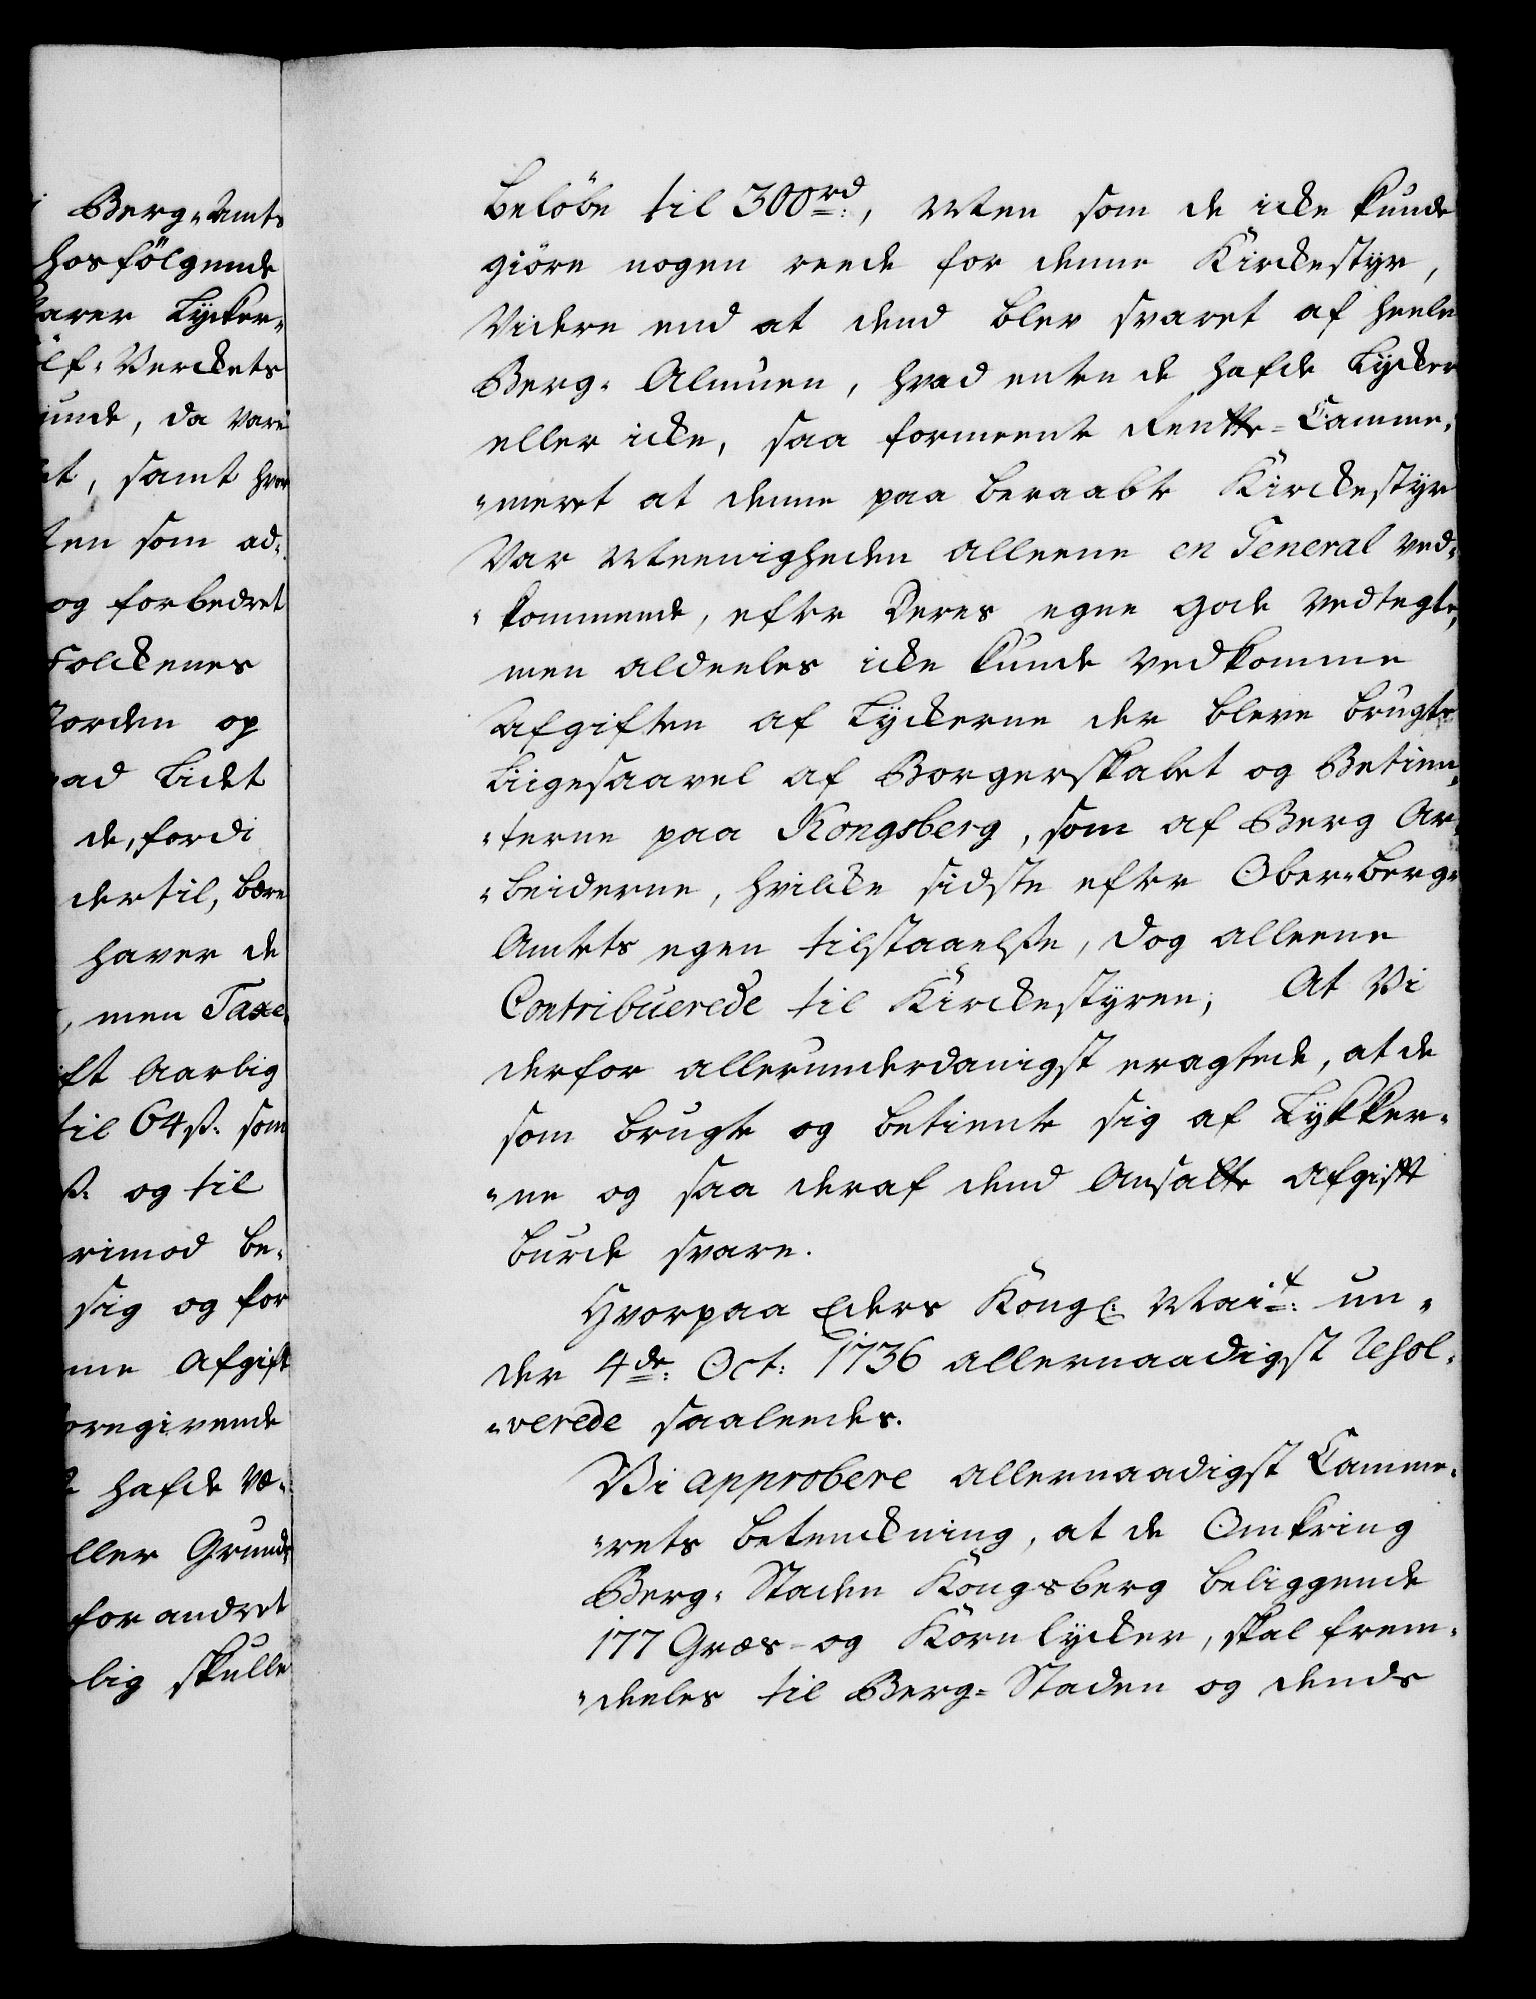 Berg-Amts
hosfölgende
arer Lycker-
ölf-Verckets
unde, da vare
et, samt hvor
ten som ad-
og forbedret
Folckenes
Jorden op
ad Lidet
de, fordi
dertil, bære
haver de
, men Taxe-
ft Aarlig
til 64 ß. som
ß. og til
rimod be-
sig og for
me Afgift
oregivende
hafde væ-
ller Grund-
forandret
lig skulle
beløbe til 300 rd:, Men som de icke kunde
giöre nogen reede for denne Kirckestyr,
Videre end at dend blev svaret af heele
Berg-Almuen, hvad enten de hafde Lycker
eller icke, saa formeente Rentte-Camme-
-meret at denne paa beraabte Kirckestyr
Var Meenigheden alleene en General ved-
-kommende, efter Deres egne gode Vedtegt,
men aldeeles icke kunde vedkomme
Afgiften af Lyckerne der bleve brugte
Liigesaavel af Borgerskabet og Betien-
-terne paa Kongsberg, som af Berg Ar-
-beiderne, hvilcke sidste efter Ober-Berg-
Amtets egen tilstaaelse, dog alleene
Contribuerede til Kirckestyren; At Vi
derfor allerunderdanigst eragtede, at de
som brugte og betiente sig af Lykker-
-ne og saa deraf dend Ansatte Afgift
burde svare.
Hvorpaa Eders Kongl: Mait: un-
der 4de: Oct: 1736 allernaadigst resol-
-verede saaleedes.
Vi approbere allernaadigst Camme-
-rets betenckning, at de Omkring
Berg-Staden Kongsberg beliggende
177 Græs- og Kornlycker, skal frem-
-deeles til Berg-Staden og dends